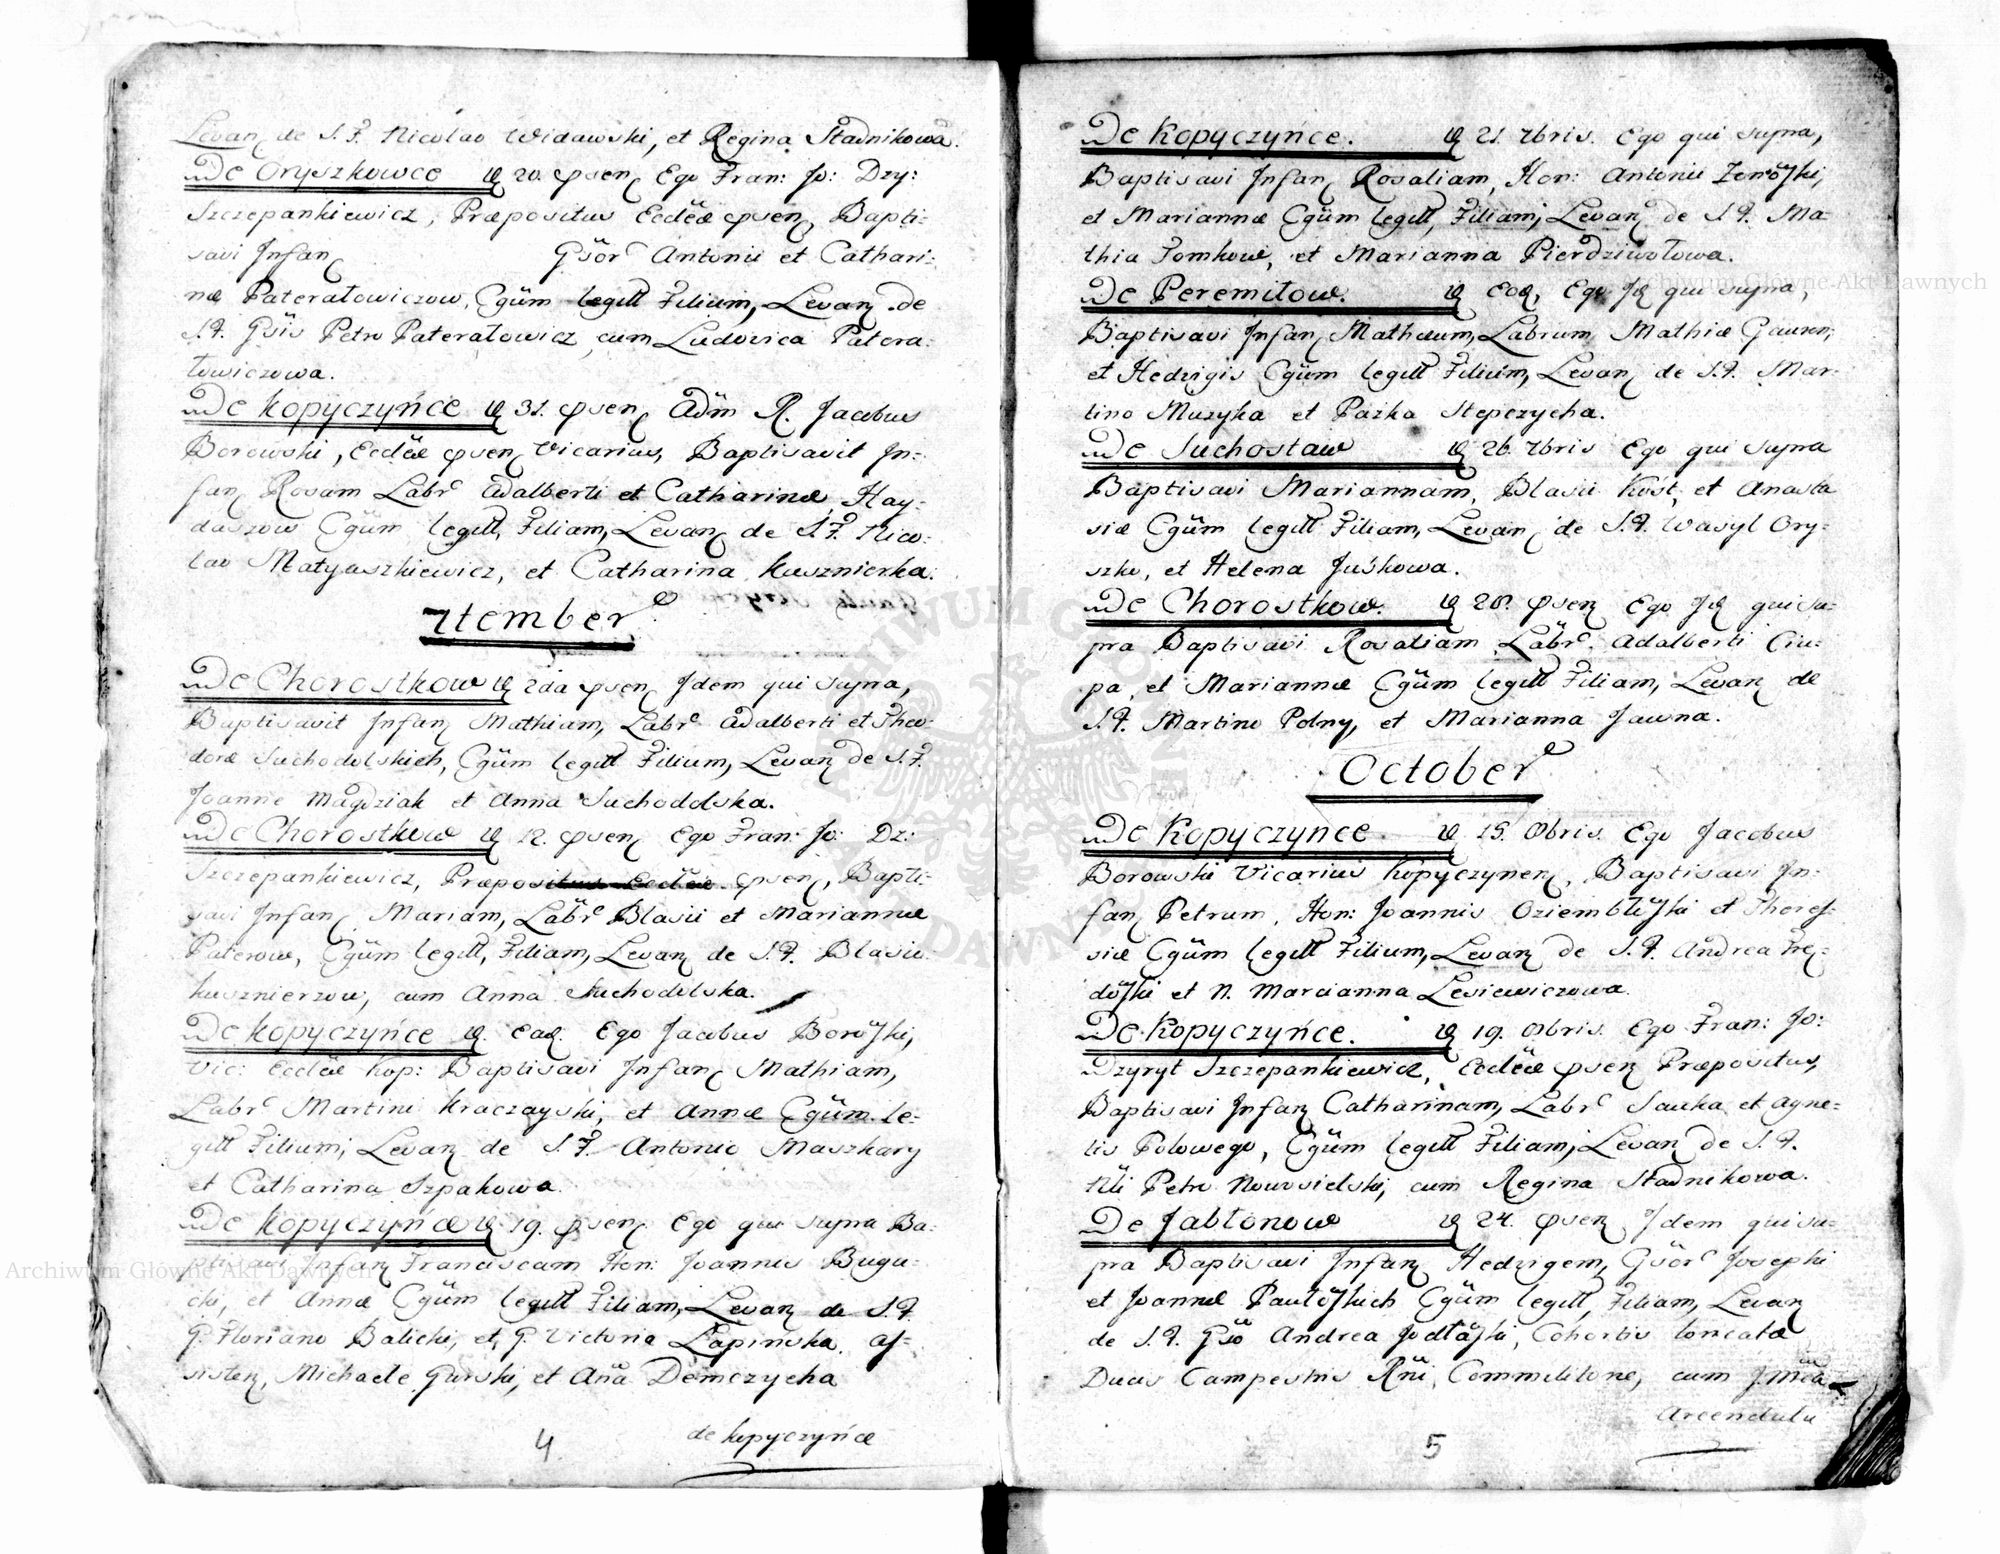 Levan de S. F. Nicolao Widawski, et Regina Stadnikowa.
De Oryszkowce d 20. psen Ego Fran: Jo: Dzy:
Szczepankiewicz, Præpositus Eccleæ psen, Bapti-
savi Infan Gsor Antonii et Cathari-
næ Pateratowiczow, Cgüm legitt Filium, Levan de
S. F. Gsis Petro Pateratowicz cum Ludovica Patera-
towiczowa.
De Kopyczyńce d 31. psen Adm R. Jacobus
Borowski, Eccleæ psen Vicarius, Baptisavit In-
fan Rosam Labr Adalberti et Catharinæ Hay-
daszow Cgüm legitt Filiam, Levan de S. F. Nico-
lao Matyaszkiewicz, et Catharina Kusznierka.
7tember
De Chorostkow d 2da psen Idem qui supra,
Baptisavit Infan Mathiam, Labr Adalberti et Theo-
doræ Suchodolskich, Cgüm legitt Filium, Levan de S. F.
Joanne Magdziak et Anna Suchodolska.
De Chorostkow d 12. psen Ego Fran: Jo: Dz:
Szczepankiewicz, Præpositus Eccleæ psen, Bapti-
savi Infan Mariam, Labr Blasii et Mariannæ
Paterow, Cgüm legitt, Filiam, Levan de S. F. Blasio
Kusznierzow, cum Anna Suchodolska.
De Kopyczyńce d. Ead. Ego Jacobus Borowski,
Vic: Eccleæ Kop: Baptisavi Infan Mathiam,
Labr Martini Kraczayski, et Annæ Cgüm le-
gitt Filium, Levan de S. F. Antonio Maszkary
et Catharina Szpakowa.
De Kopyczyńce d 19. psen Ego qui supra Ba-
ptisavi Infan Franciscam Hon: Joannis Buga-
cki, et Annæ Cgüm legitt Filiam, Levan de S. F.
G. Floriano Balicki, et G. Victoria Łapinska. As-
sisten, Michaele Gurski, et Aña Demczycha
de Kopyczyńce
4
De Kopyczyńce. d 21. 7bris. Ego qui supra,
Baptisavi Infan Rosaliam, Hon: Antonii
et Mariannæ Cgüm legitt, Filiam, Levan de S. F. Ma-
thia Tomkow, et Marianna Pierdziwołowa.
De Peremilow. d Ead, Ego Id qui supra,
Baptisavi Infan Mathæum, Labrum Mathiæ Gauron,
et Hedvigis Cgüm legitt Filium, Levan de S. F. Mar-
tino Muzyka et Pazka Stepczycha.
De Suchostaw d 26. 7bris Ego qui supra
Baptisavi Mariannam, Blasii Kost, et Anasta
siæ Cgüm legitt Filiam, Levan de S. F. Wasyl Ory-
szko, et Helena Juśkowa.
De Chorostkow. d 28. psen Ego Id qui su-
pra Baptisavi Rosaliam Labr. Adalberti Ciu-
pa, et Mariannæ Cgüm legitt Filiam, Levan de
S. F. Martino Polny, et Marianna Jawna.
October
De Kopyczynce. d 15. Obris. Ego Jacobus
Borowski Vicarius Kopyczynen, Baptisavi In-
fan Petrum, Hon: Joannis Oziembłowski et Theres-
siæ Cgüm legitt Filium, Levan de S. F. Andrea Fre-
dowski et N. Marcianna Lesiewiczowa.
De Kopyczyńce. d 19. Obris. Ego Fran: Jo:
Dzyryt Szczepankiewicz, Eccleæ psen Præpositus,
Baptisavi Infan Catharinam, Labr Sauka et Agne-
tis Polowego, Cgüm legitt Filiam, Levan de S. F.
Petro Nowosielski, cum Regina Stadnikowa.
De Jabłonow d 24. psen Idem qui su-
pra Baptisavi Infan Hedvigem, Gsor Josephi
et Joannæ Pawłowskich Cgüm legitt, Filiam, Levan
de S. F. Gso Andrea Jodłowski, Cohortis loricatæ
Ducis Campestris Rñi, Commilitone, cum
Arcendatu
5
Archiwum Główne Akt Dawnych
Archiwum Główne Akt Dawnych
ARCHIWUM GŁÓWNE AKT DAWNYCH